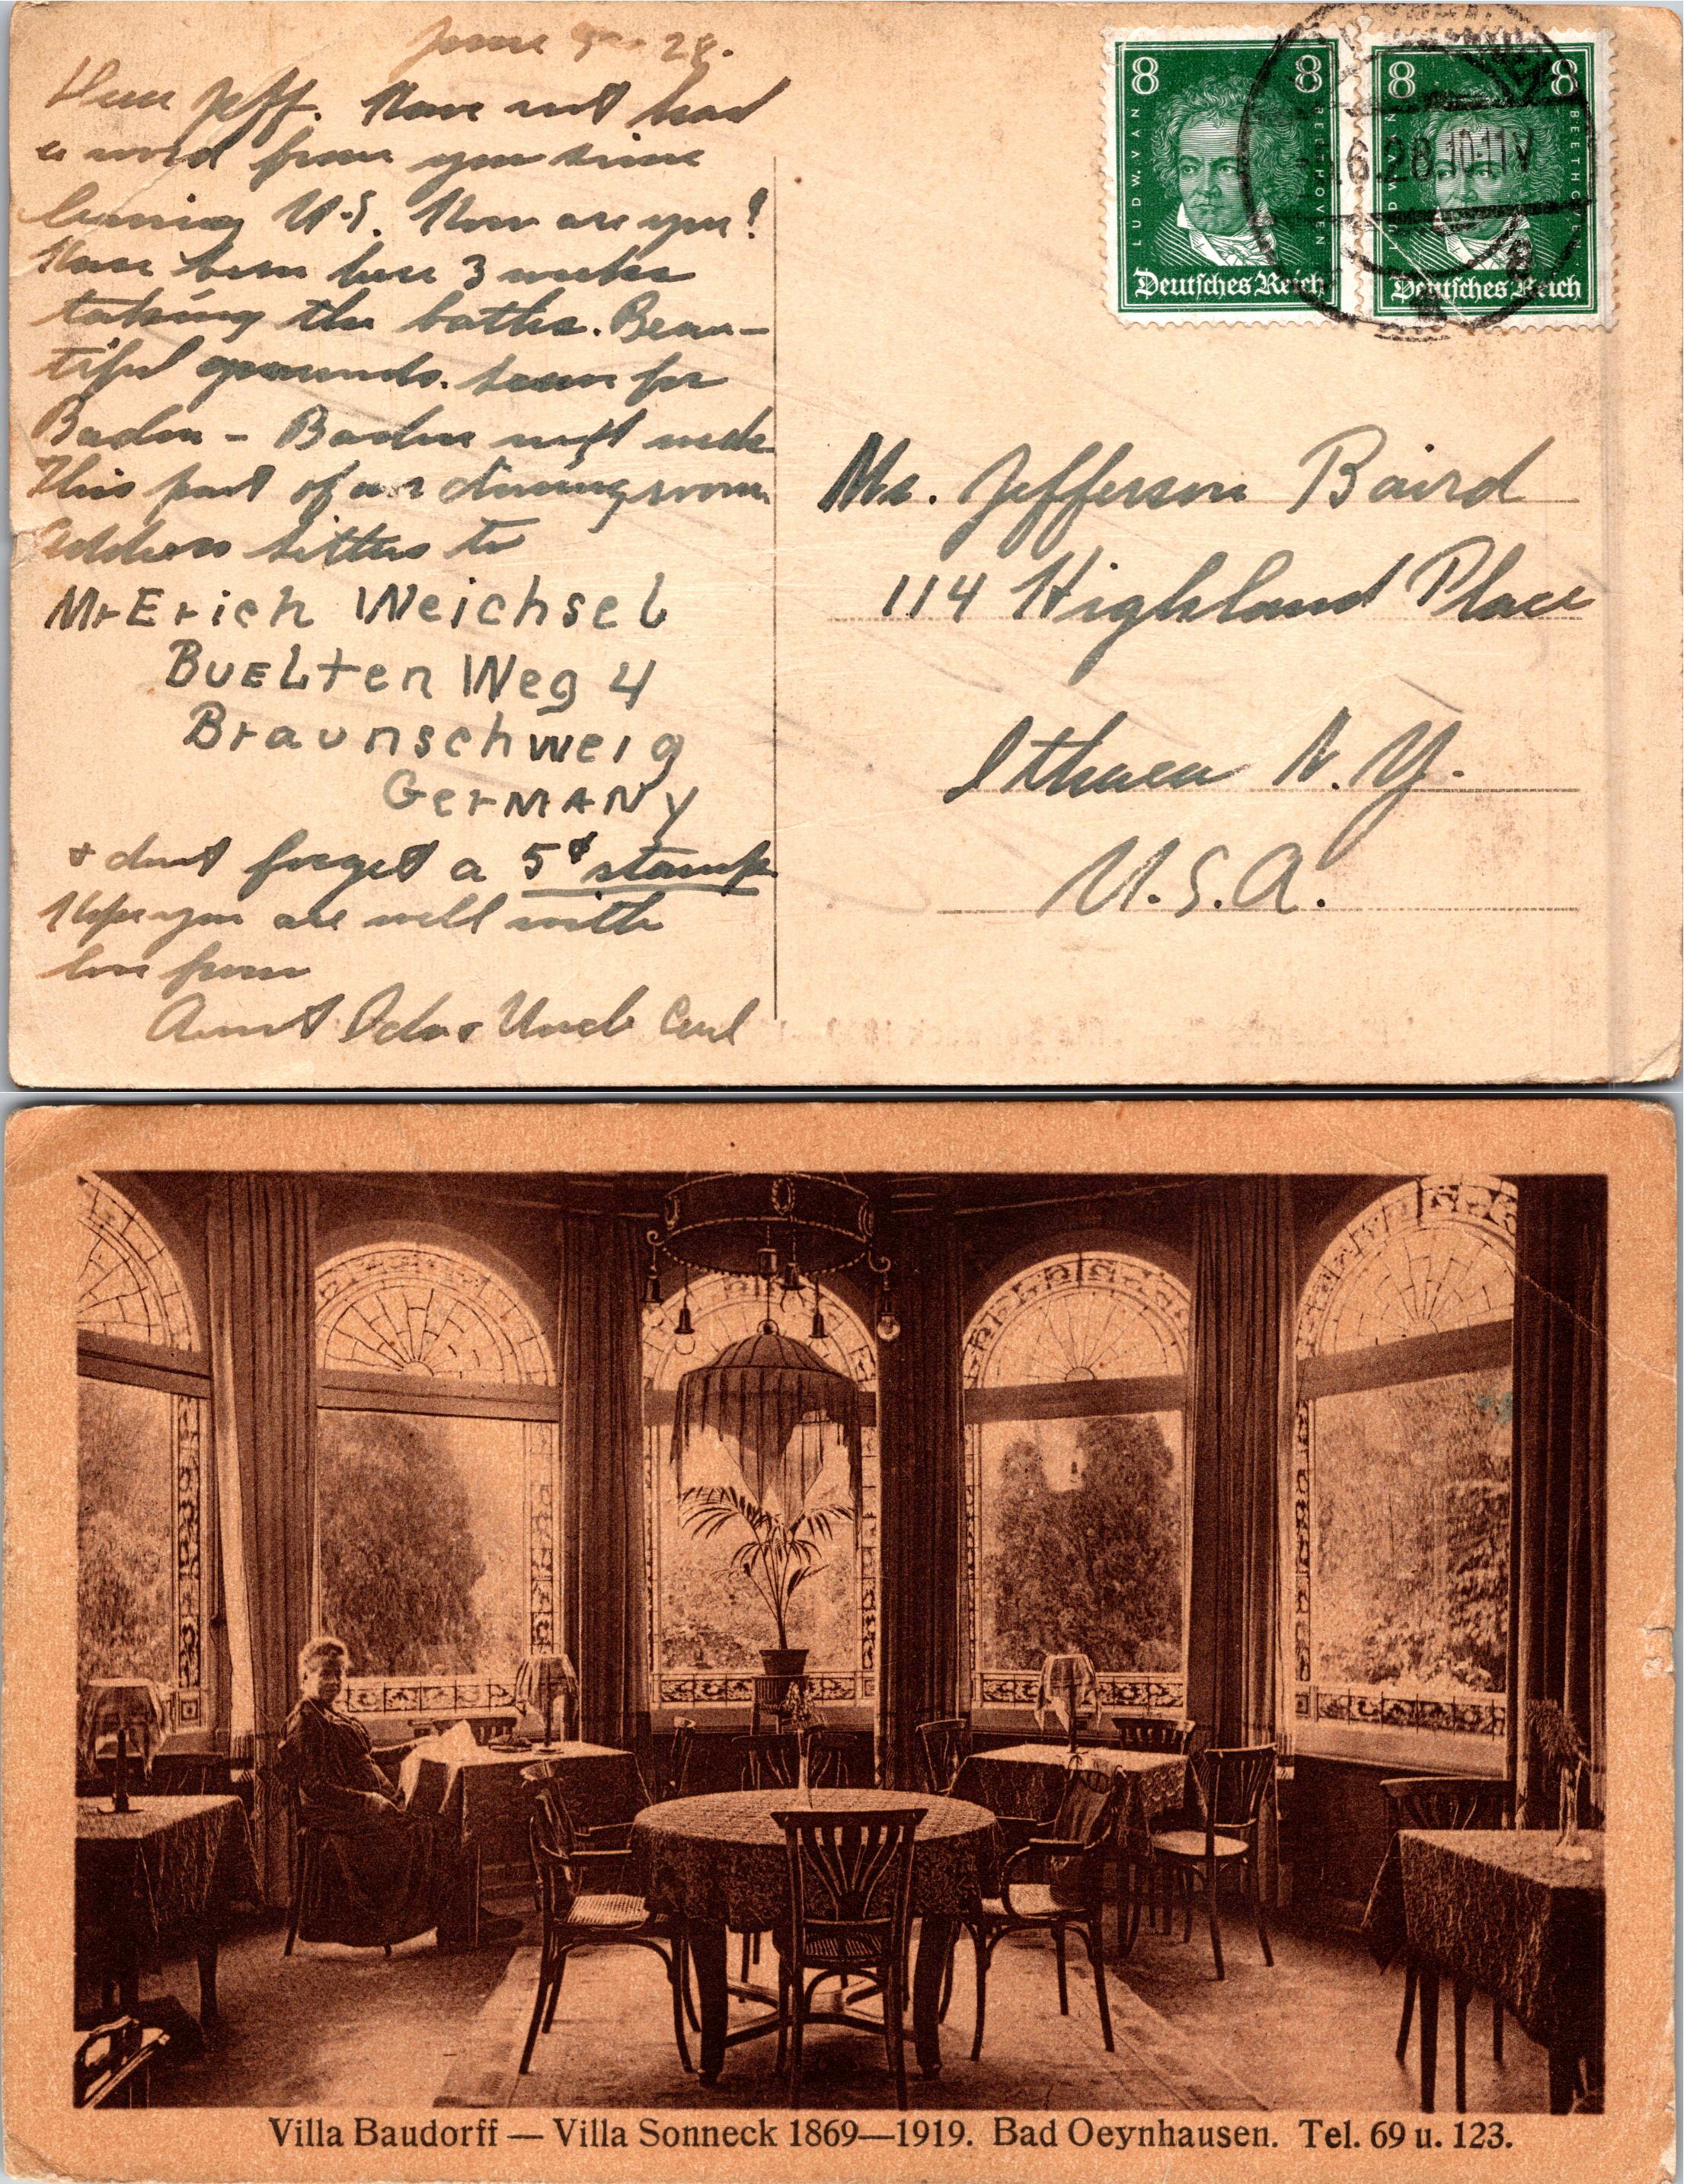 June 28.
Dear Jeff. Have not had
a word from you since
leaving U.S. How are you?
Have been here 3 weeks
taking the baths. Beau-
tiful grounds. leave for
Baden - Baden next week
This part of our diningroom
Address letters to
Mr Erich Weichsel
BUELten Weg 4
Braunschweig
GerMANy
+ dont forget a 5¢ stamp
Hope you are well with
love from
Aunt Ida & Uncle Carl
8 8
LUDW. VAN BEETHOVEN
Deutsches Reich
8 8
LUDW. VAN BEETHOVEN
Deutsches Reich
.6.28.10-11V
Mr. Jefferson Baird
114 Highland Place
Ithaca N.Y.
U.S.A.
Villa Baudorff — Villa Sonneck 1869—1919. Bad Oeynhausen. Tel. 69 u. 123.